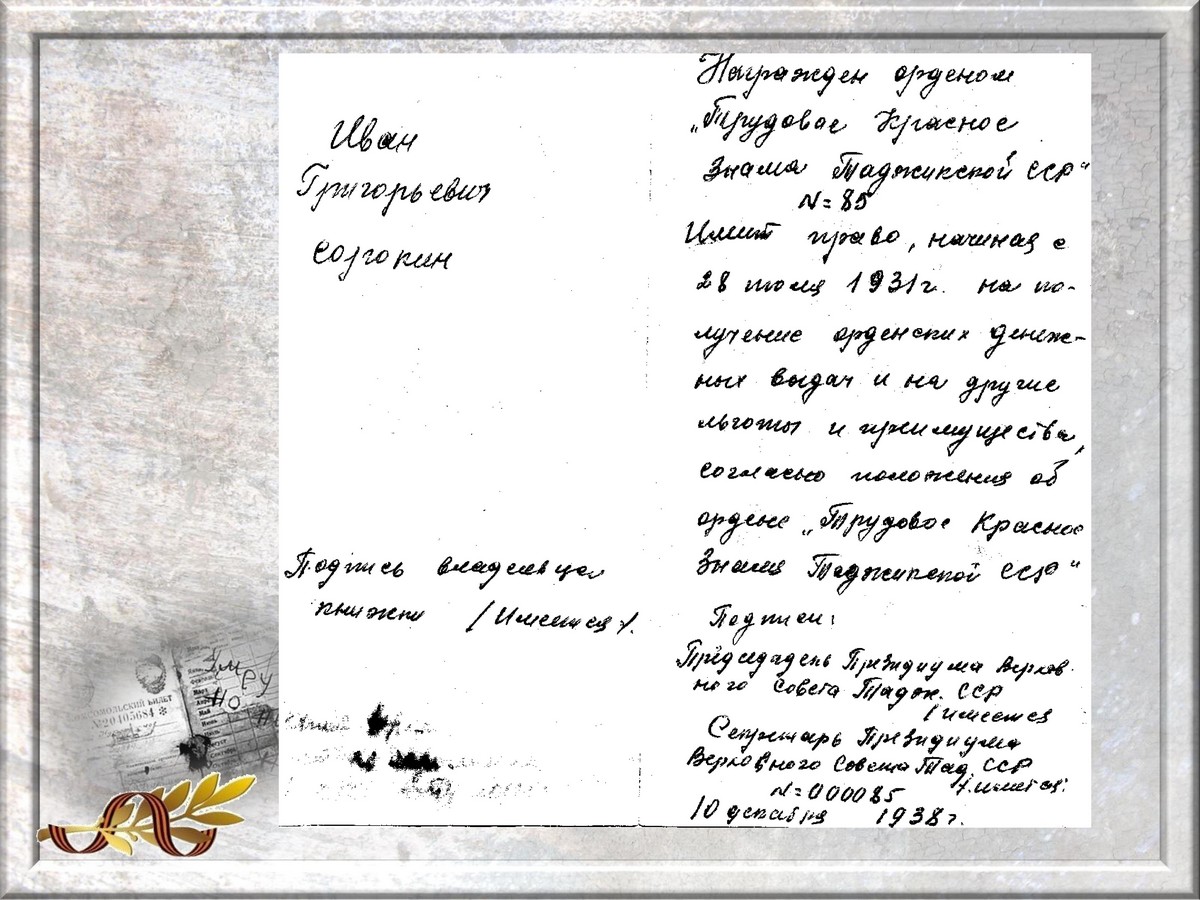 Иван
Григорьевич
Сорокин
Подпись владельца
книжки (Имеется).
Награжден орденом
„Трудовое Красное
Знамя Таджикской ССР"
N= 85
Имеет право, начиная с
28 июля 1931г. на по-
лучение орденских денеж-
ных выдач и на другие
льготы и преимущества,
согласно положения об
ордене „Трудовое Красное
Знамя Таджикской ССР"
Подписи:
Председатель Президиума Верхов-
ного Совета Тадж. ССР
(имеется
Секретарь Президиума
Верховного Совета Тад. ССР
N= 000085 /. имеется:
10 декабря 1938г.
КОМСОМОЛЬСКИЙ БИЛЕТ
№20405684
Умру
но